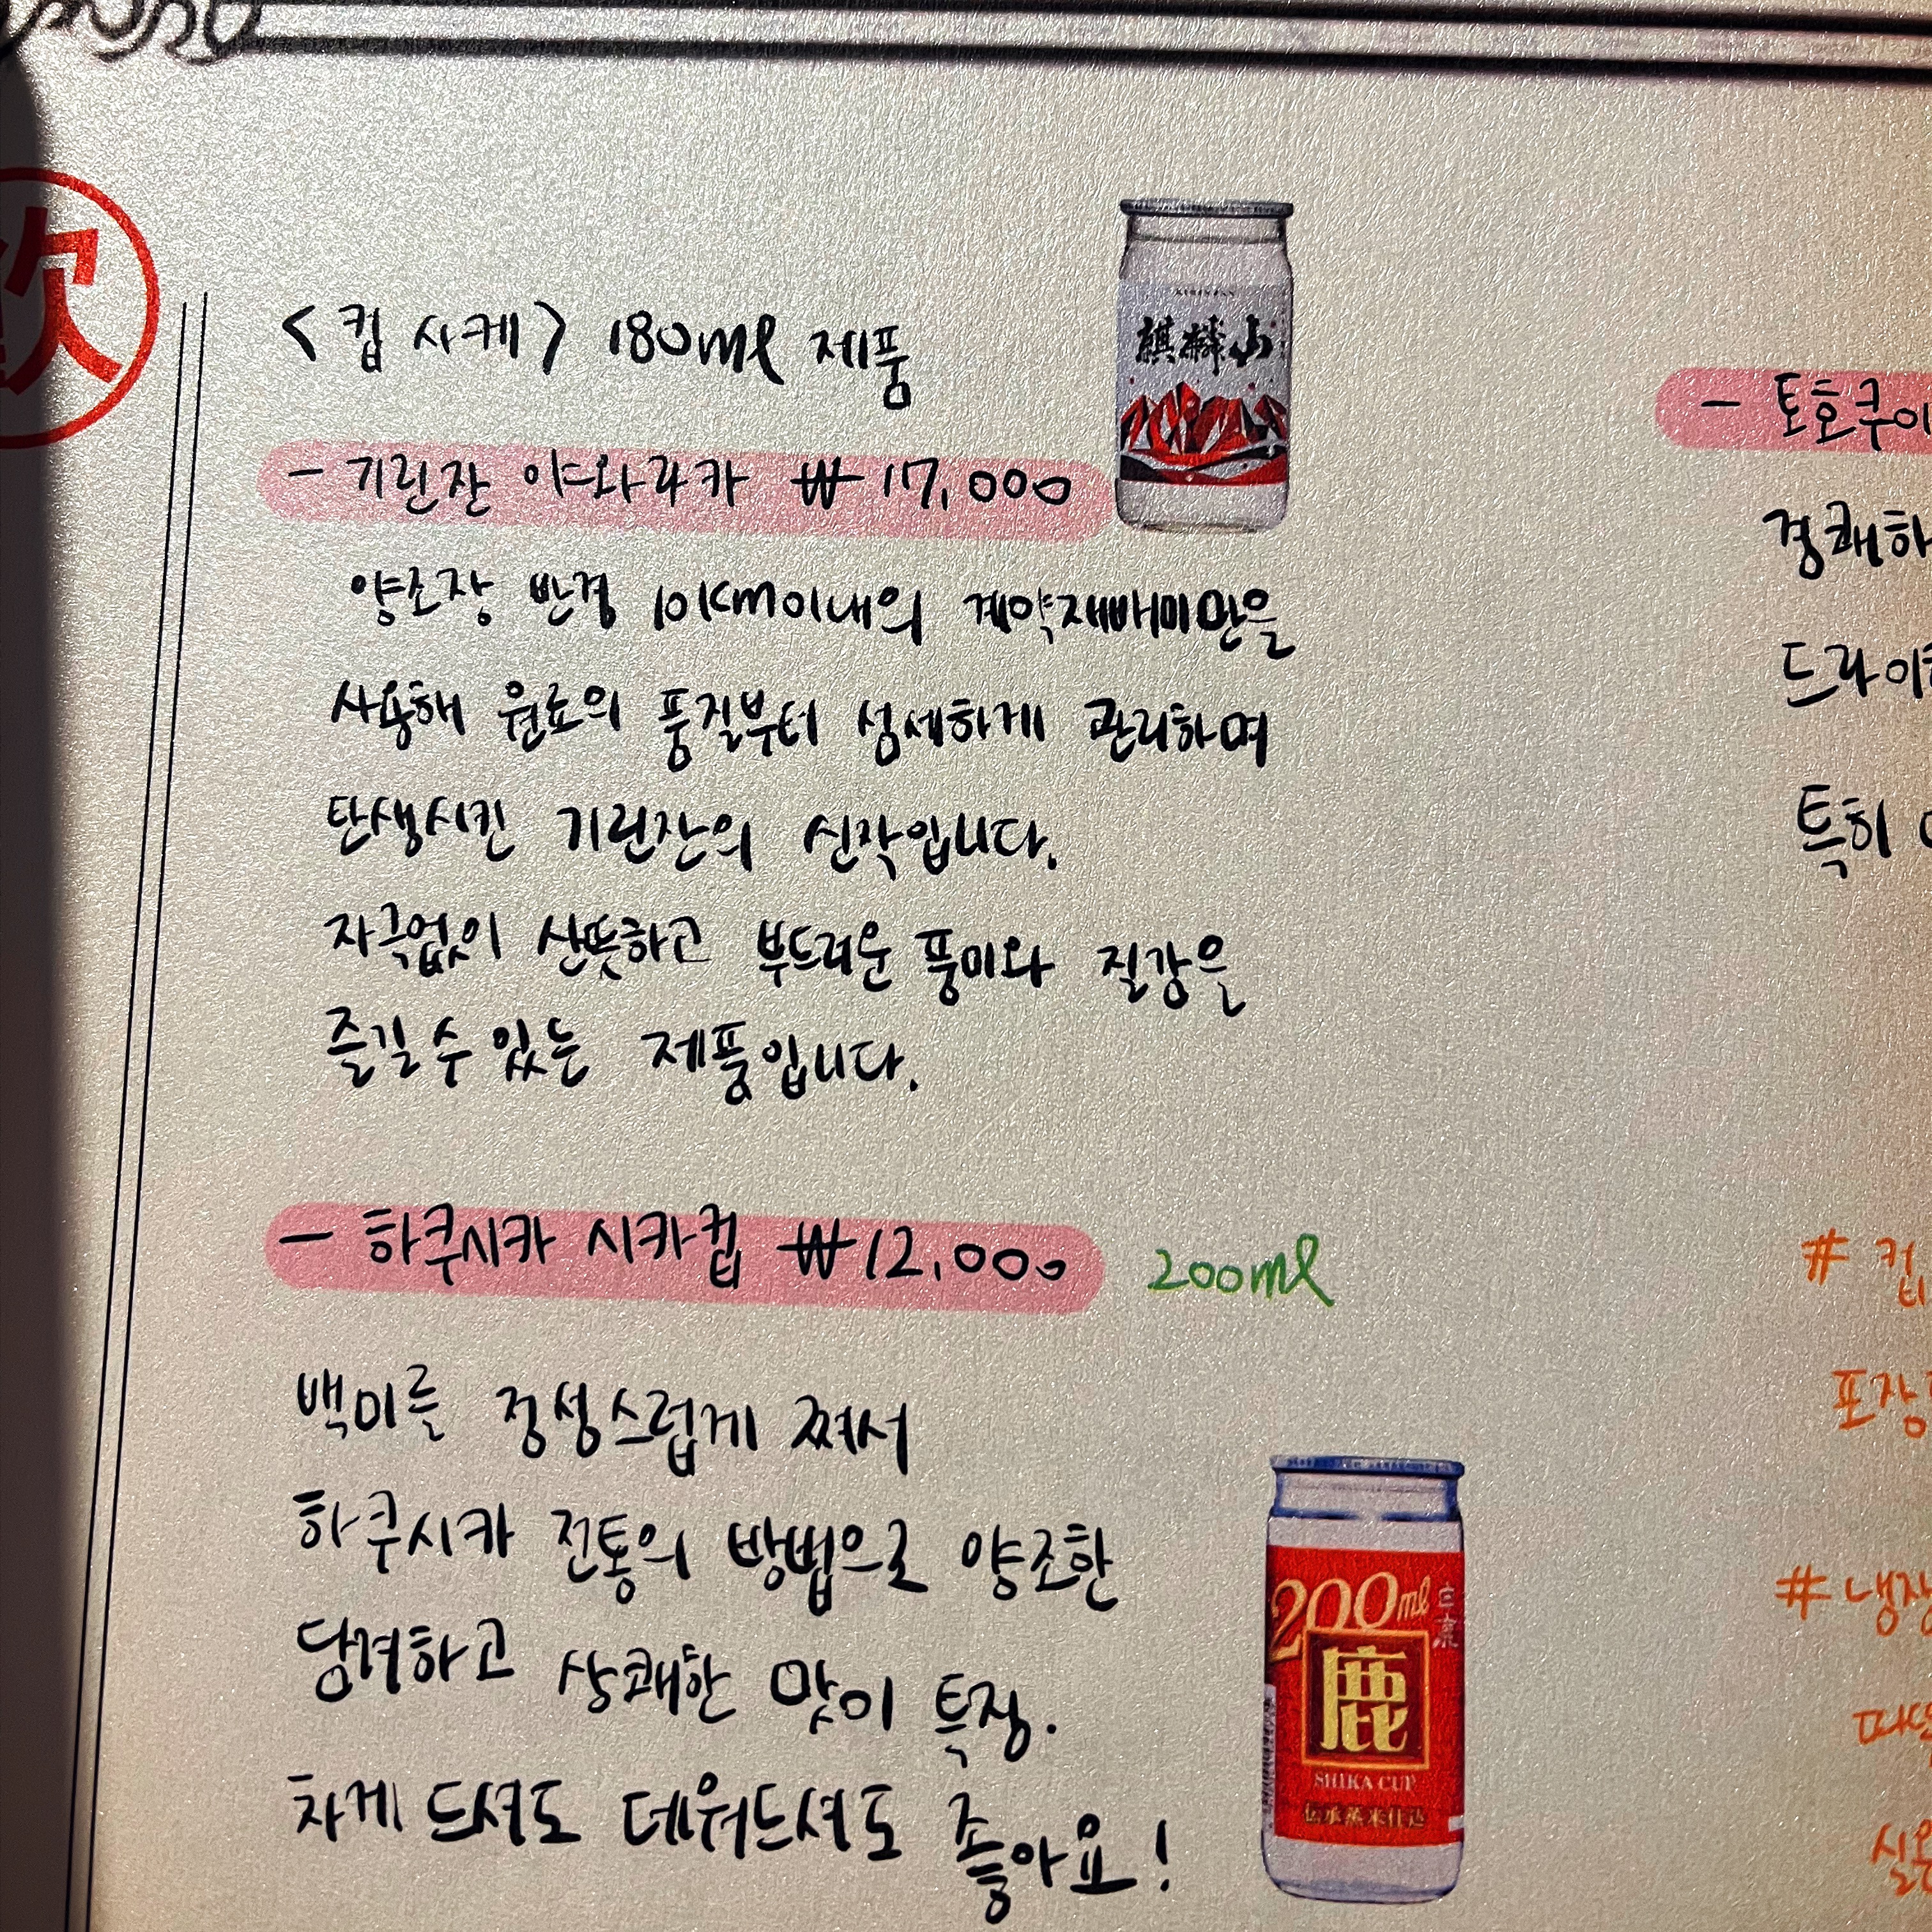 <컵 사케> 180ml 제품
KIRINZAN
麒麟山
- 기린잔 야와라카 ₩17,000
양조장 반경 10km이내의 계약재배미만을
사용해 원료의 품질부터 섬세하게 관리하며
탄생시킨 기린잔의 신작입니다.
자극없이 산뜻하고 부드러운 풍미와 질감을
즐길 수 있는 제품입니다.
- 하쿠시카 시카컵 ₩12,000 200ml
백미를 정성스럽게 쪄서
하쿠시카 전통의 방법으로 양조한
담려하고 상쾌한 맛이 특징.
차게 드셔도 데워드셔도 좋아요!
200ml
鹿
SHIKA CUP
伝承蒸米仕込
- 토호쿠이
경쾌하
드라이
특히
# 컵
포장
# 냉장
따뜻
실온